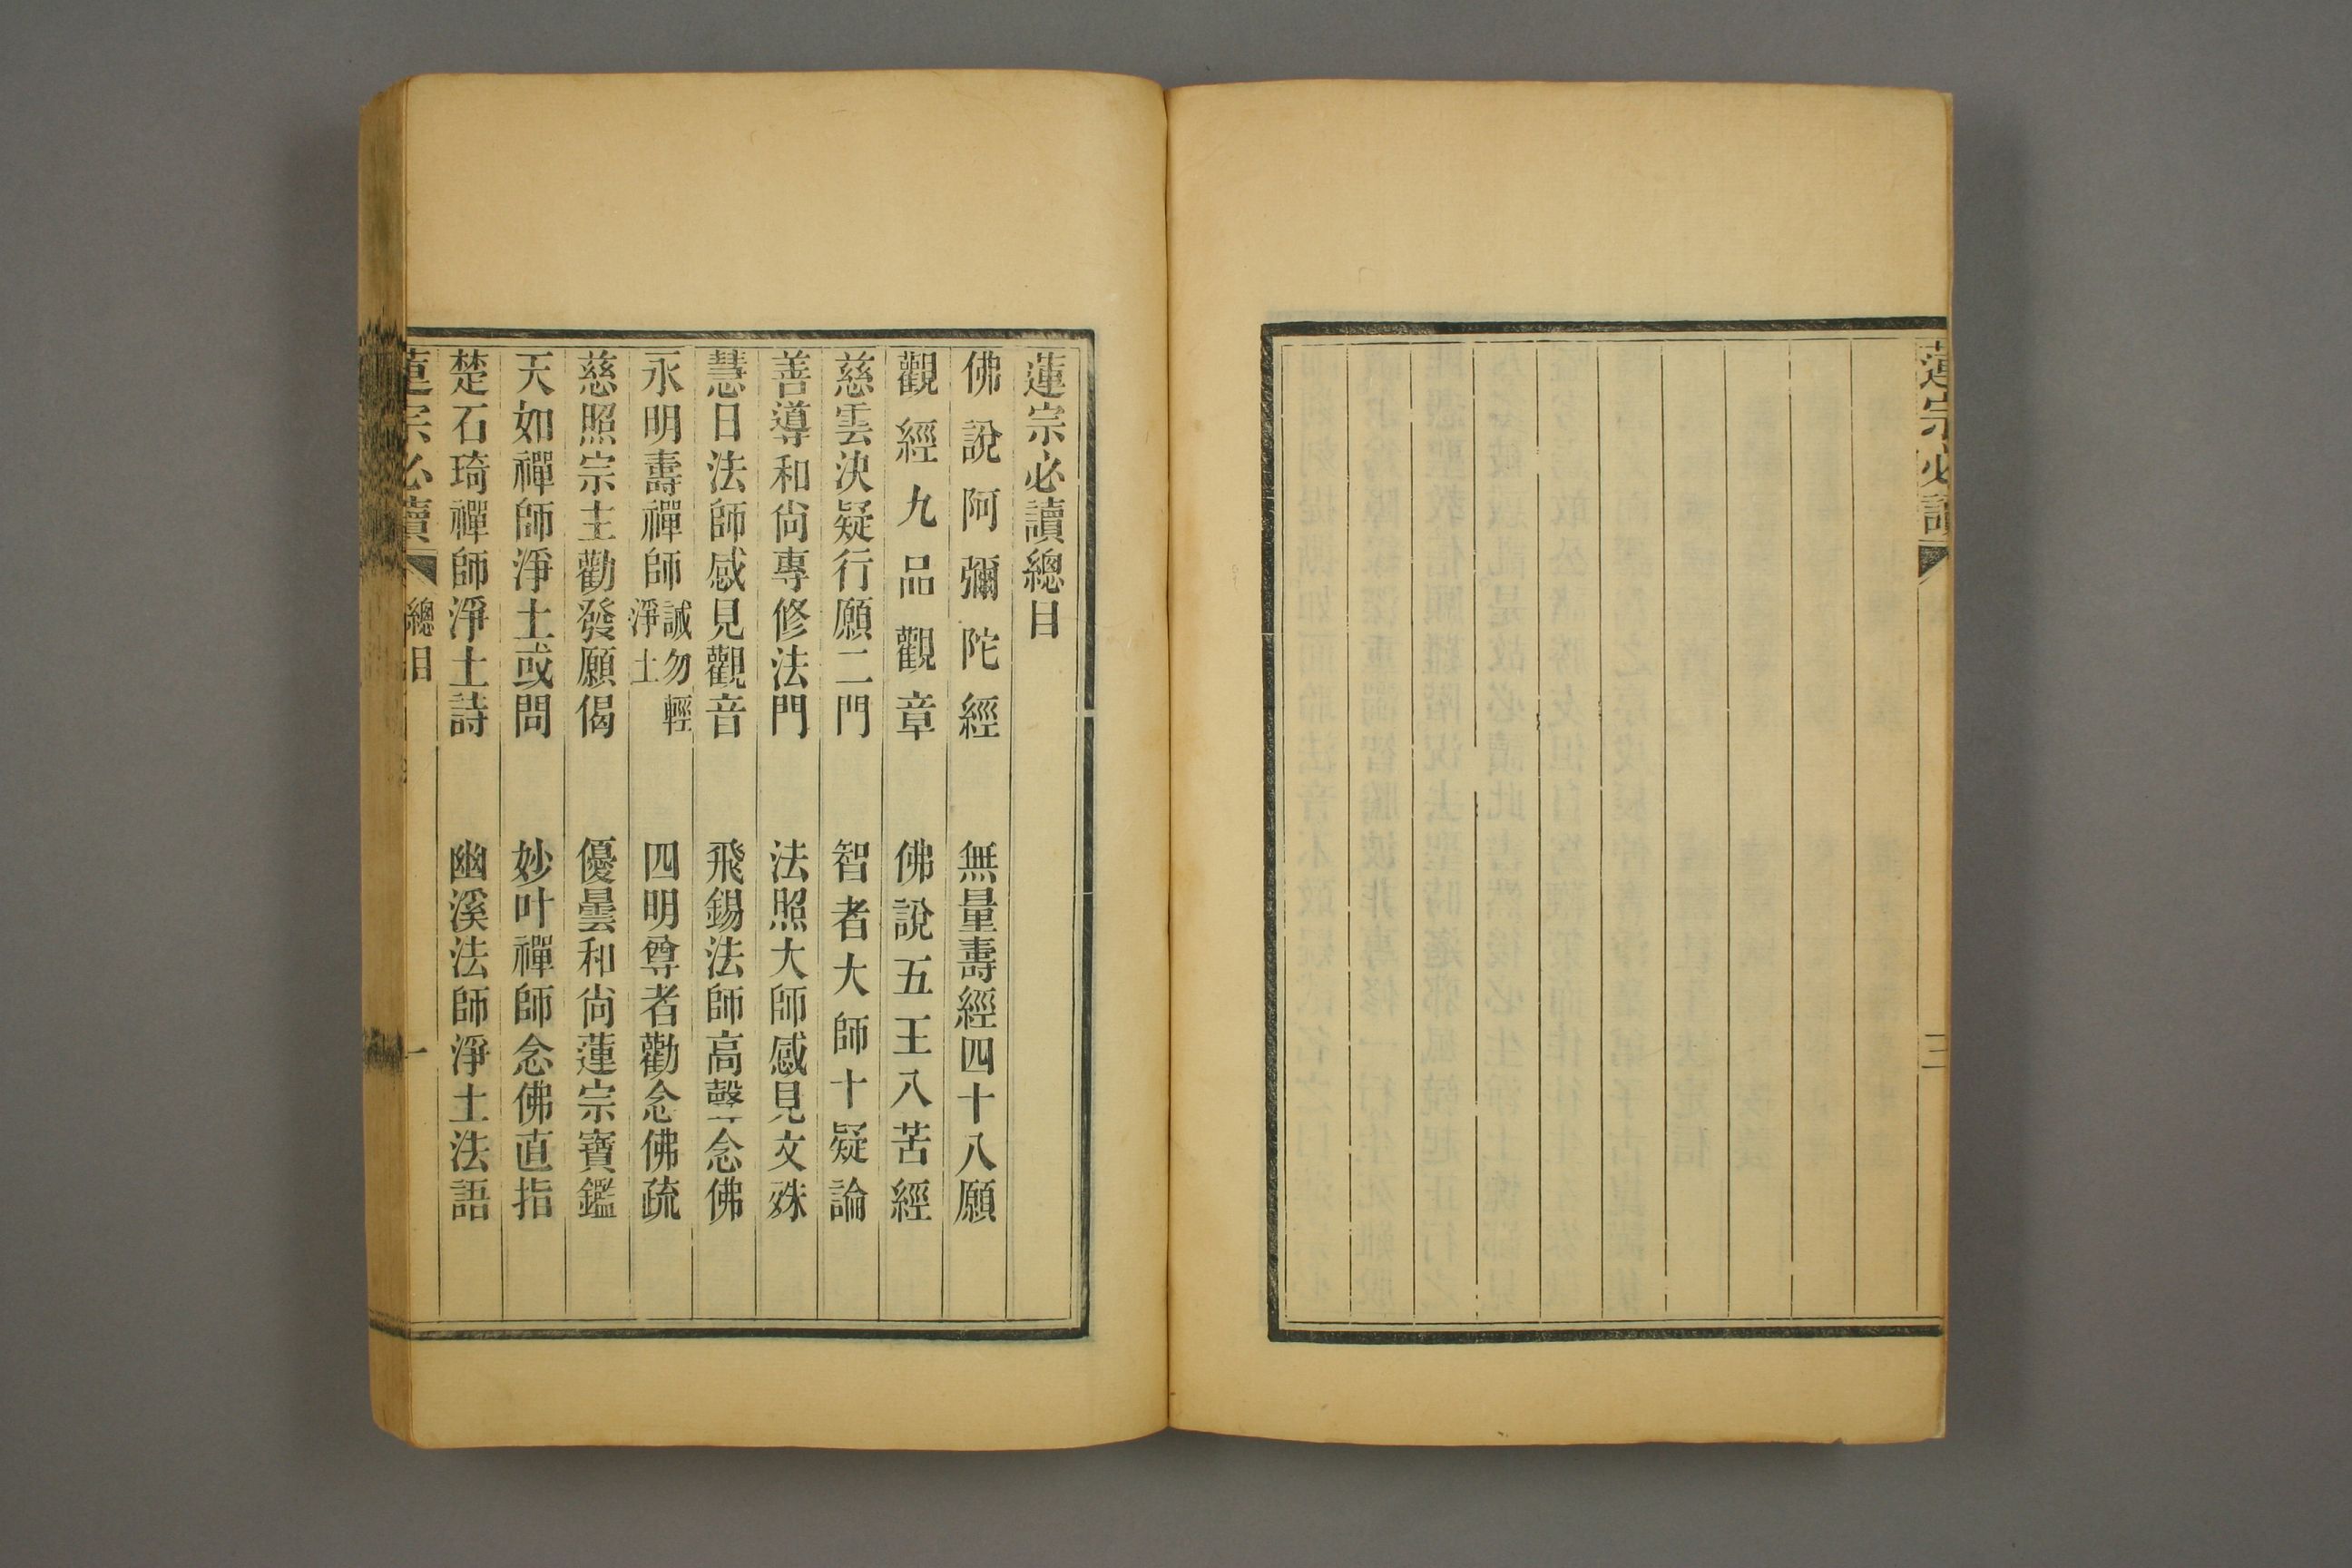 蓮宗必讀
三
蓮宗必讀總目
佛說阿彌陀經　無量壽經四十八願
觀經九品觀章　佛說五王八苦經
慈雲決疑行願二門　智者大師十疑論
善導和尚專修法門　法照大師感見文殊
慧日法師感見觀音　飛錫法師高聲念佛
永明壽禪師誡勿輕淨土　四明尊者勸念佛疏
慈照宗主勸發願偈　優曇和尚蓮宗寶鑑
天如禪師淨土或問　妙叶禪師念佛直指
楚石琦禪師淨土詩　幽溪法師淨土法語
蓮宗必讀　總目　一